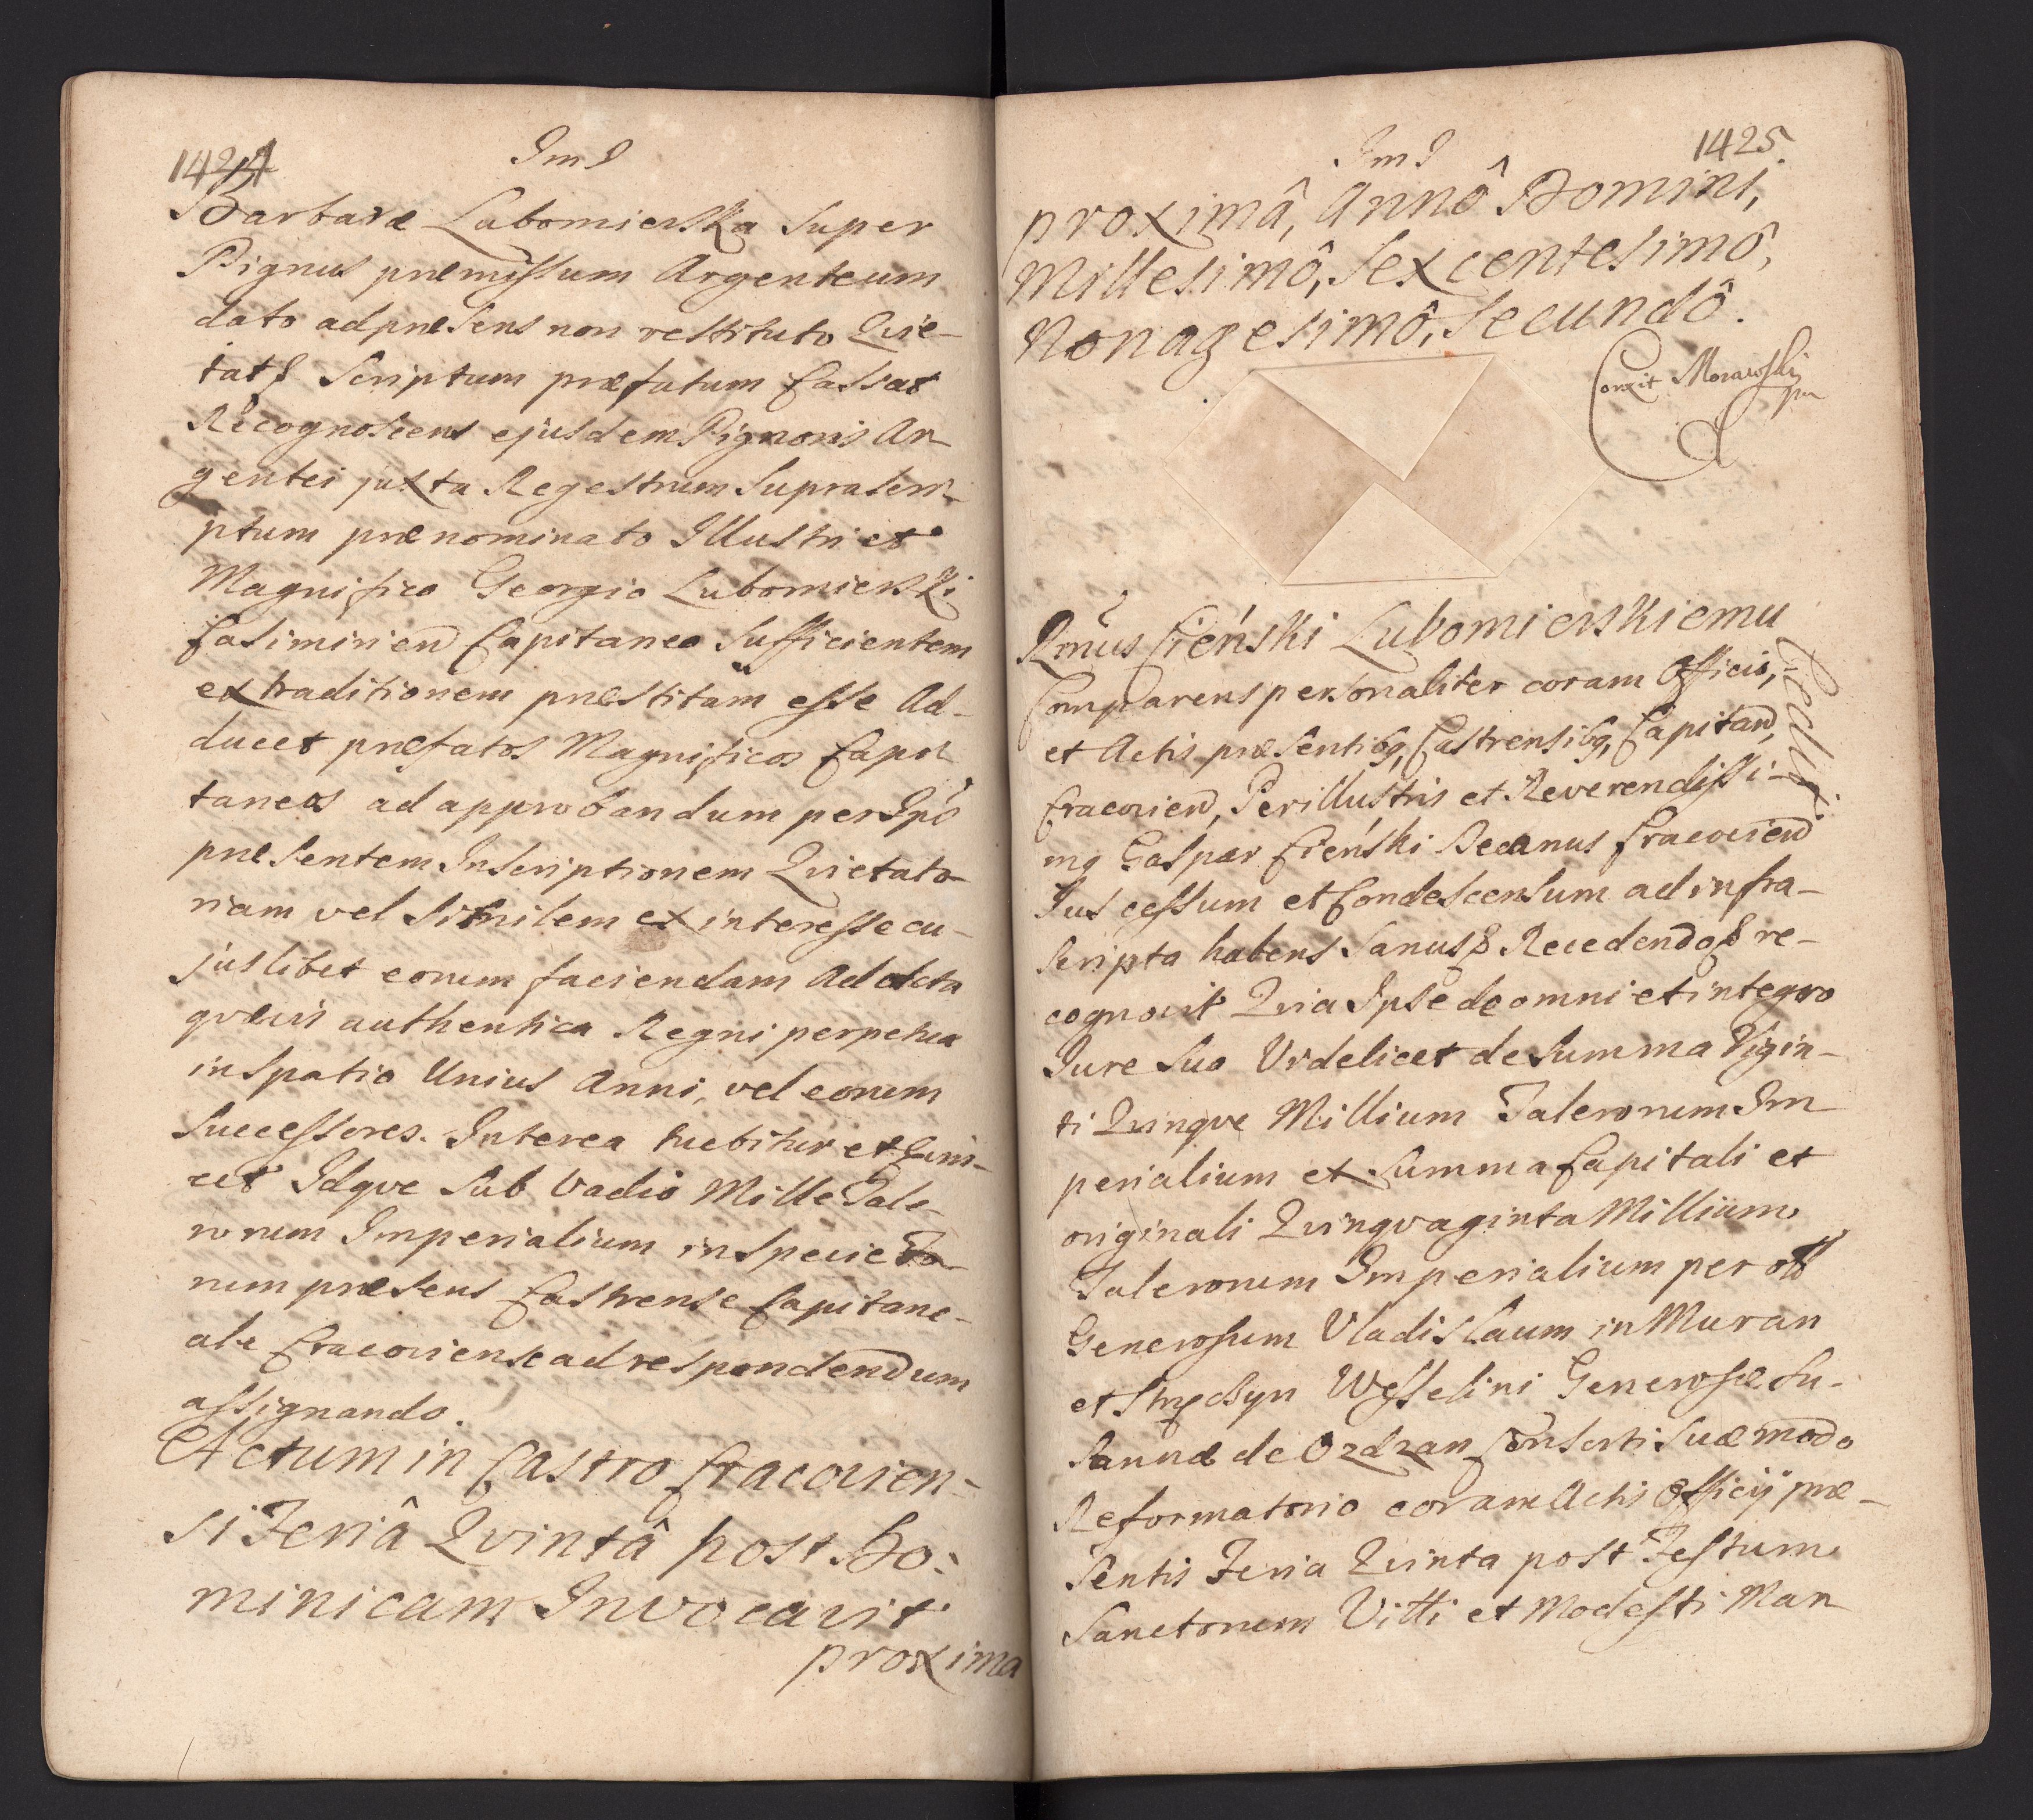 1424
ImI
Barbaræ Lubomierska super
Pignus præmissum Argenteum
dato ad præsens non restituto Qvie-
tat Scriptum præfatum Cassat
Recognoscens ejusdem Pignoris Ar-
gentei juxta Regestrum supra scri-
ptum prænominato Illustri et
Magnifico Georgio Lubomierski
Casimirien Capitaneo sufficientem
extraditionem præstitam esse Ad-
ducet præfatos Magnificos Capi-
taneos ad approbandum per Ipos
præsentem Inscriptionem Qvietato-
riam vel similem ex interesse cu-
juslibet eorum faciendam Ad Acta
qvævis authentica Regni perpetua
in spatio Unius Anni, vel eorum
Successores. Interea tuebitur et Evin-
cet Idqve sub Vadio Mille Tale-
rorum Imperialium in specie Fo-
rum præsens Castrense Capitane-
ale Cracoviense ad respondendum
assignando.
Actum in Castro Cracovien-
si Feriâ Qvintâ post Do-
minicam Invocavit
proxima
1425
ImI
proximâ, Annô Domini,
Millesimô, Sexcentesimô,
Nonagesimô, Secundô.
Conxit Morawski
mp
Rmus Cieński Lubomierskiemu
Cedit
Comparens personaliter coram Officio,
et Actis præsentibq, Castrensibq, Capitan,
Cracovien, Perillustris et Reverendissi-
mq Gaspar Cieński Decanus Cracovien
Jus cessum et Condescensum ad infra-
scripta habens Sanus Recedendo re-
cognovit Qvia Ipse de omni et integro
Jure suo Videlicet de summa Vigin-
ti Qvinqve Millium Talerorum Im-
perialium ex summa Capitali et
originali Qvinqvaginta Millium
Talerorum Imperialium per olt
Generosum Vladislaum in Muran
et Stręczyn Wesselini Generosæ Su-
sannæ de Ozdzan Consorti suæ modo
Reformatorio coram Actis Officij præ-
sentis Feria Qvinta post Festum
Sanctorum Vitti et Modesti Mar